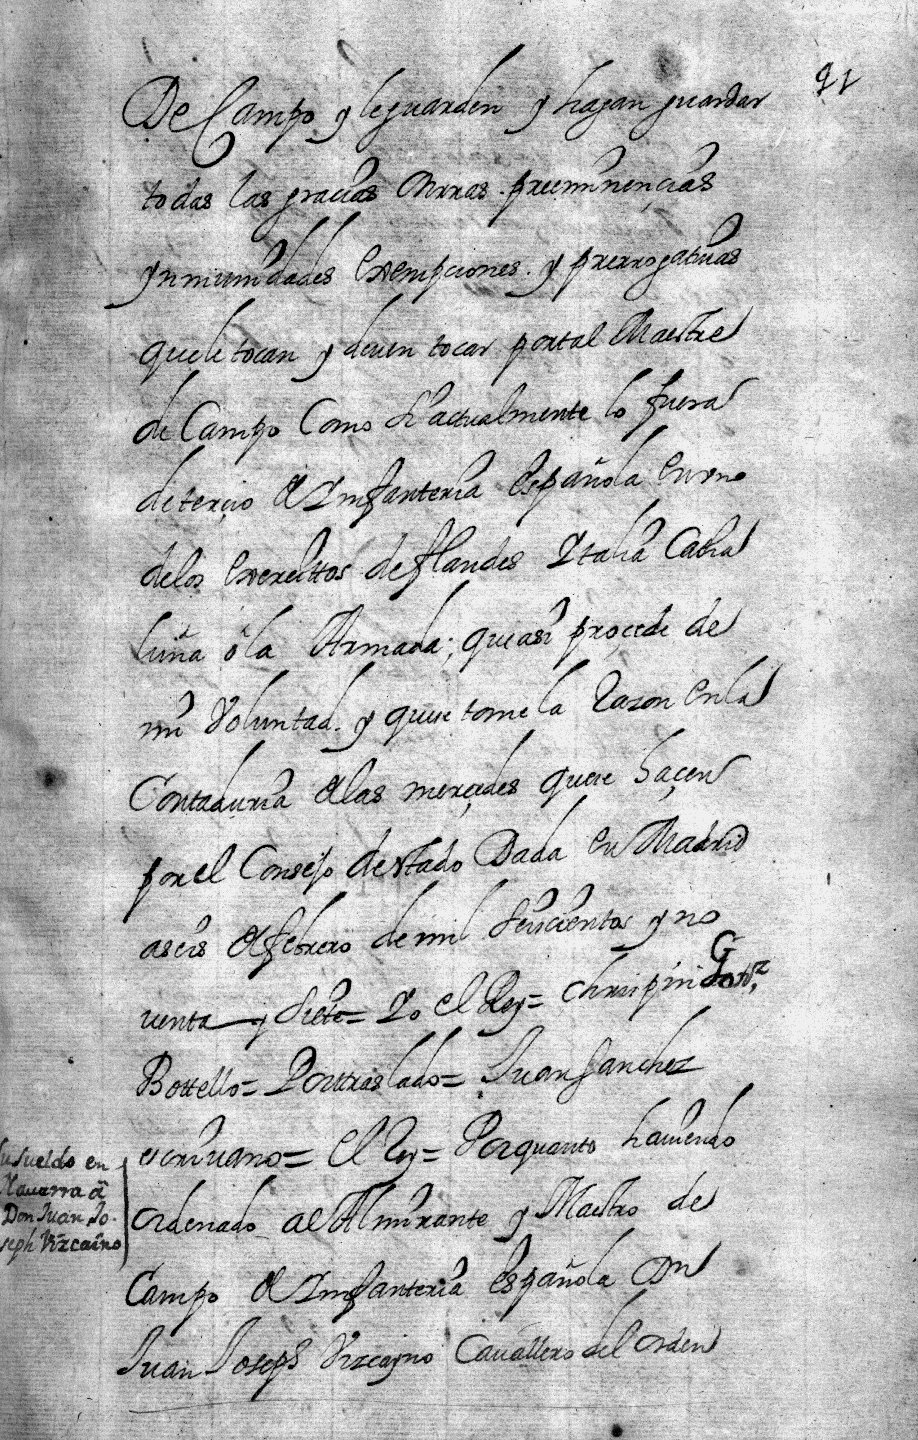 91
De Campo y leguarden y hagan guardar
todas las gracias onrras. preeminençias
ynmunidades exempciones. y prerrogatiuas
quele tocan y deuen tocar portal Maestre
de Campo Como si actualmente lo fuera
deterçio de Ynfanteria española en vno
delos exercittos deflandes Ytalia Catha
luña ó la Armada; queasi proçede de
mi Voluntad. y quese tome la Razon enla
Contaduria delas merçedes quese haçen
por el Consejo destado Dada en Madrid
aseis de febrero de mil seiscientos y no
uenta y siete= Yo el Rey= Chrispin Gonz
Bottello= Por traslado= Juan sanchez
escriuano= El Rey= Por quanto hauiendo
ordenado al Almirante y Maestro de
Campo de Ynfanteria española Dn
Juan Joseph Vizcayno Cauallero del orden
su sueldo en
Nauarra á
Don Juan Jo-
seph Vizcaino